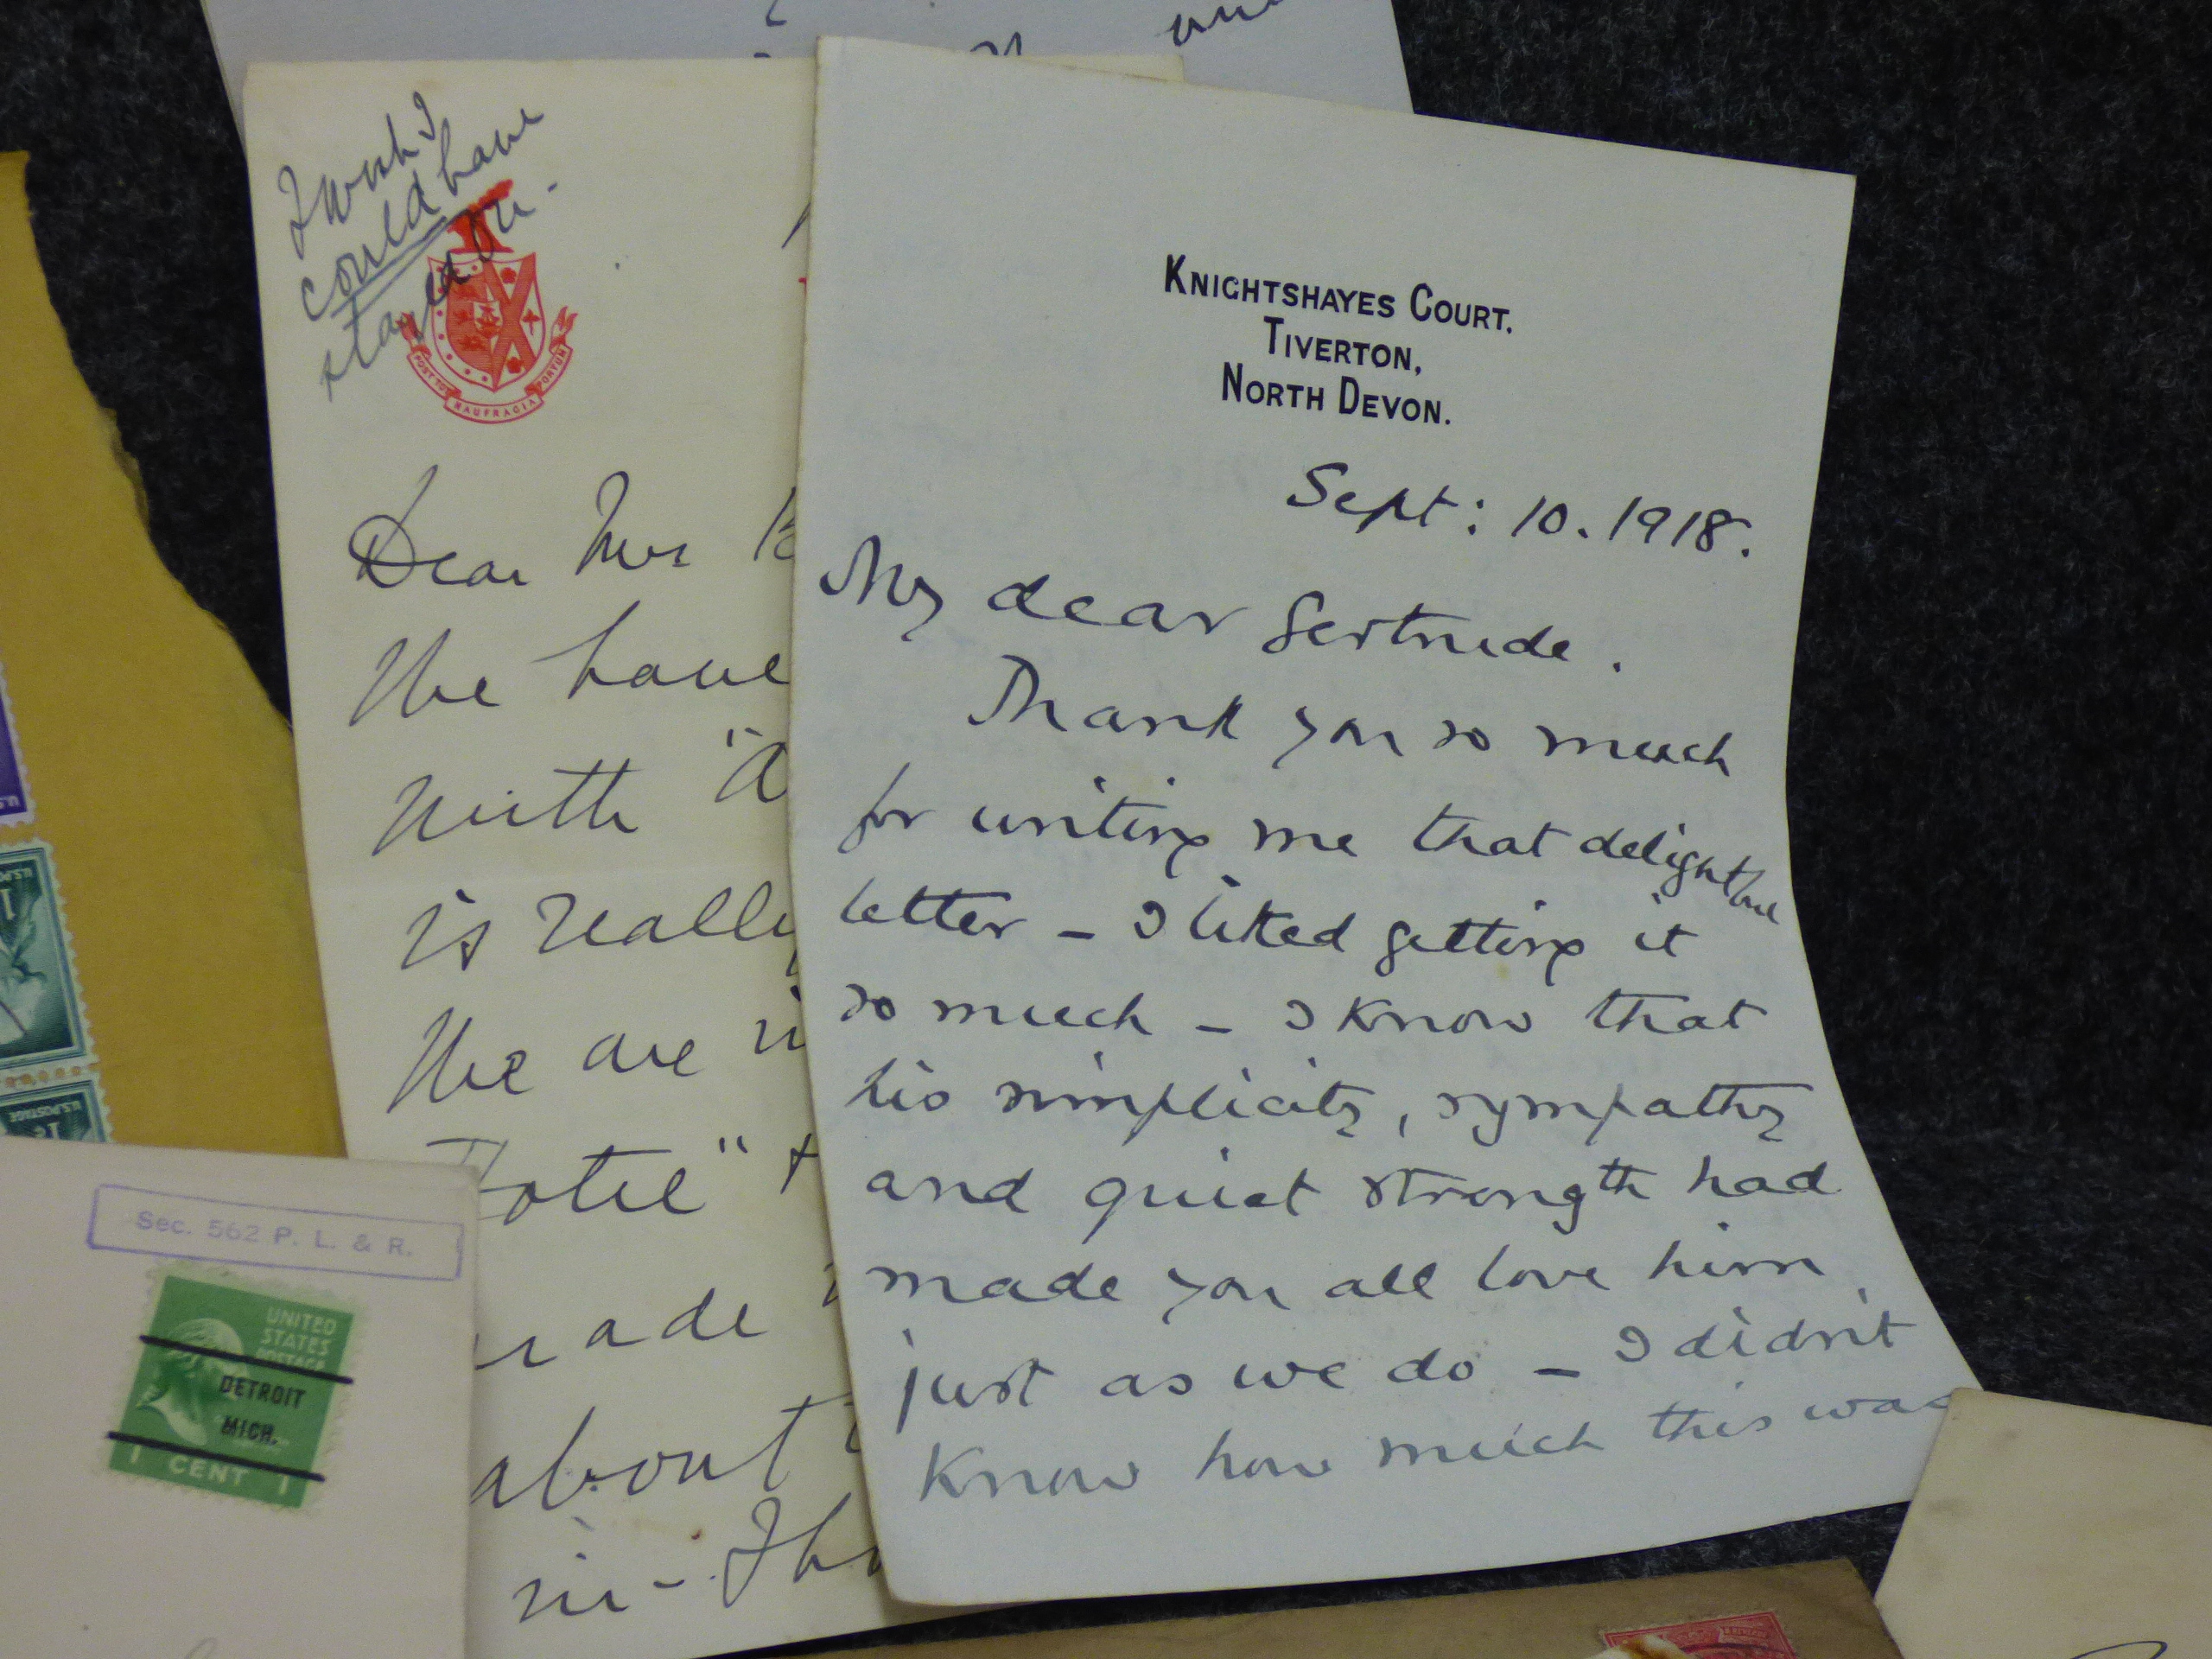 I wish I
could have
stayed on.
POST TOT NAUFRAGIA PORTUM
Dear Mrs
We have
with "A
is really
We are
Hotel" +
made
about
in -
KNIGHTSHAYES COURT,
TIVERTON,
NORTH DEVON.
Sept: 10. 1918.
My dear Gertrude.
Thank you so much
for writing me that delightful
letter - I liked getting it
so much - I know that
his simplicity, sympathy
and quiet strength had
made you all love him,
just as we do - I didn't
know how much this was
U.S. POSTAGE
1
U.S. POSTAGE
1
Sec. 562 P. L. & R.
UNITED
STATES
POSTAGE
DETROIT
MICH.
1 CENT 1